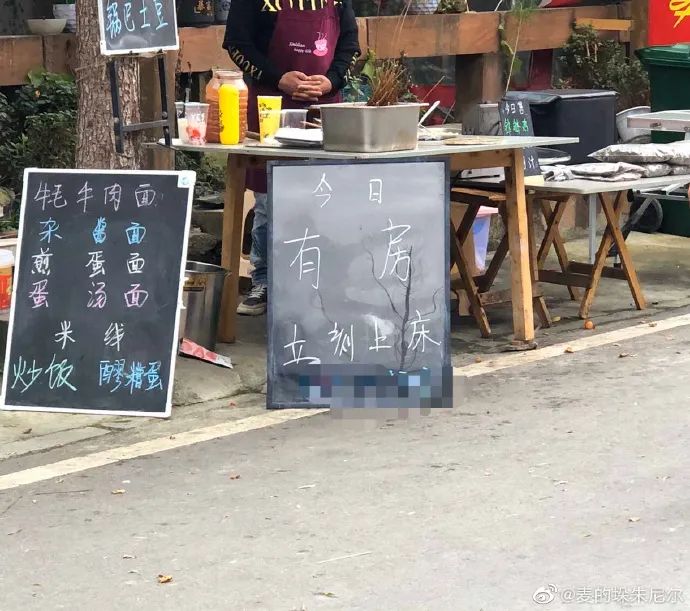 锅巴土豆
牦牛肉面
杂酱面
煎蛋面
蛋汤面
米线
炒饭 醪糟蛋
今日
有房
立刻上床
今日售
@麦的垛朱尼尔